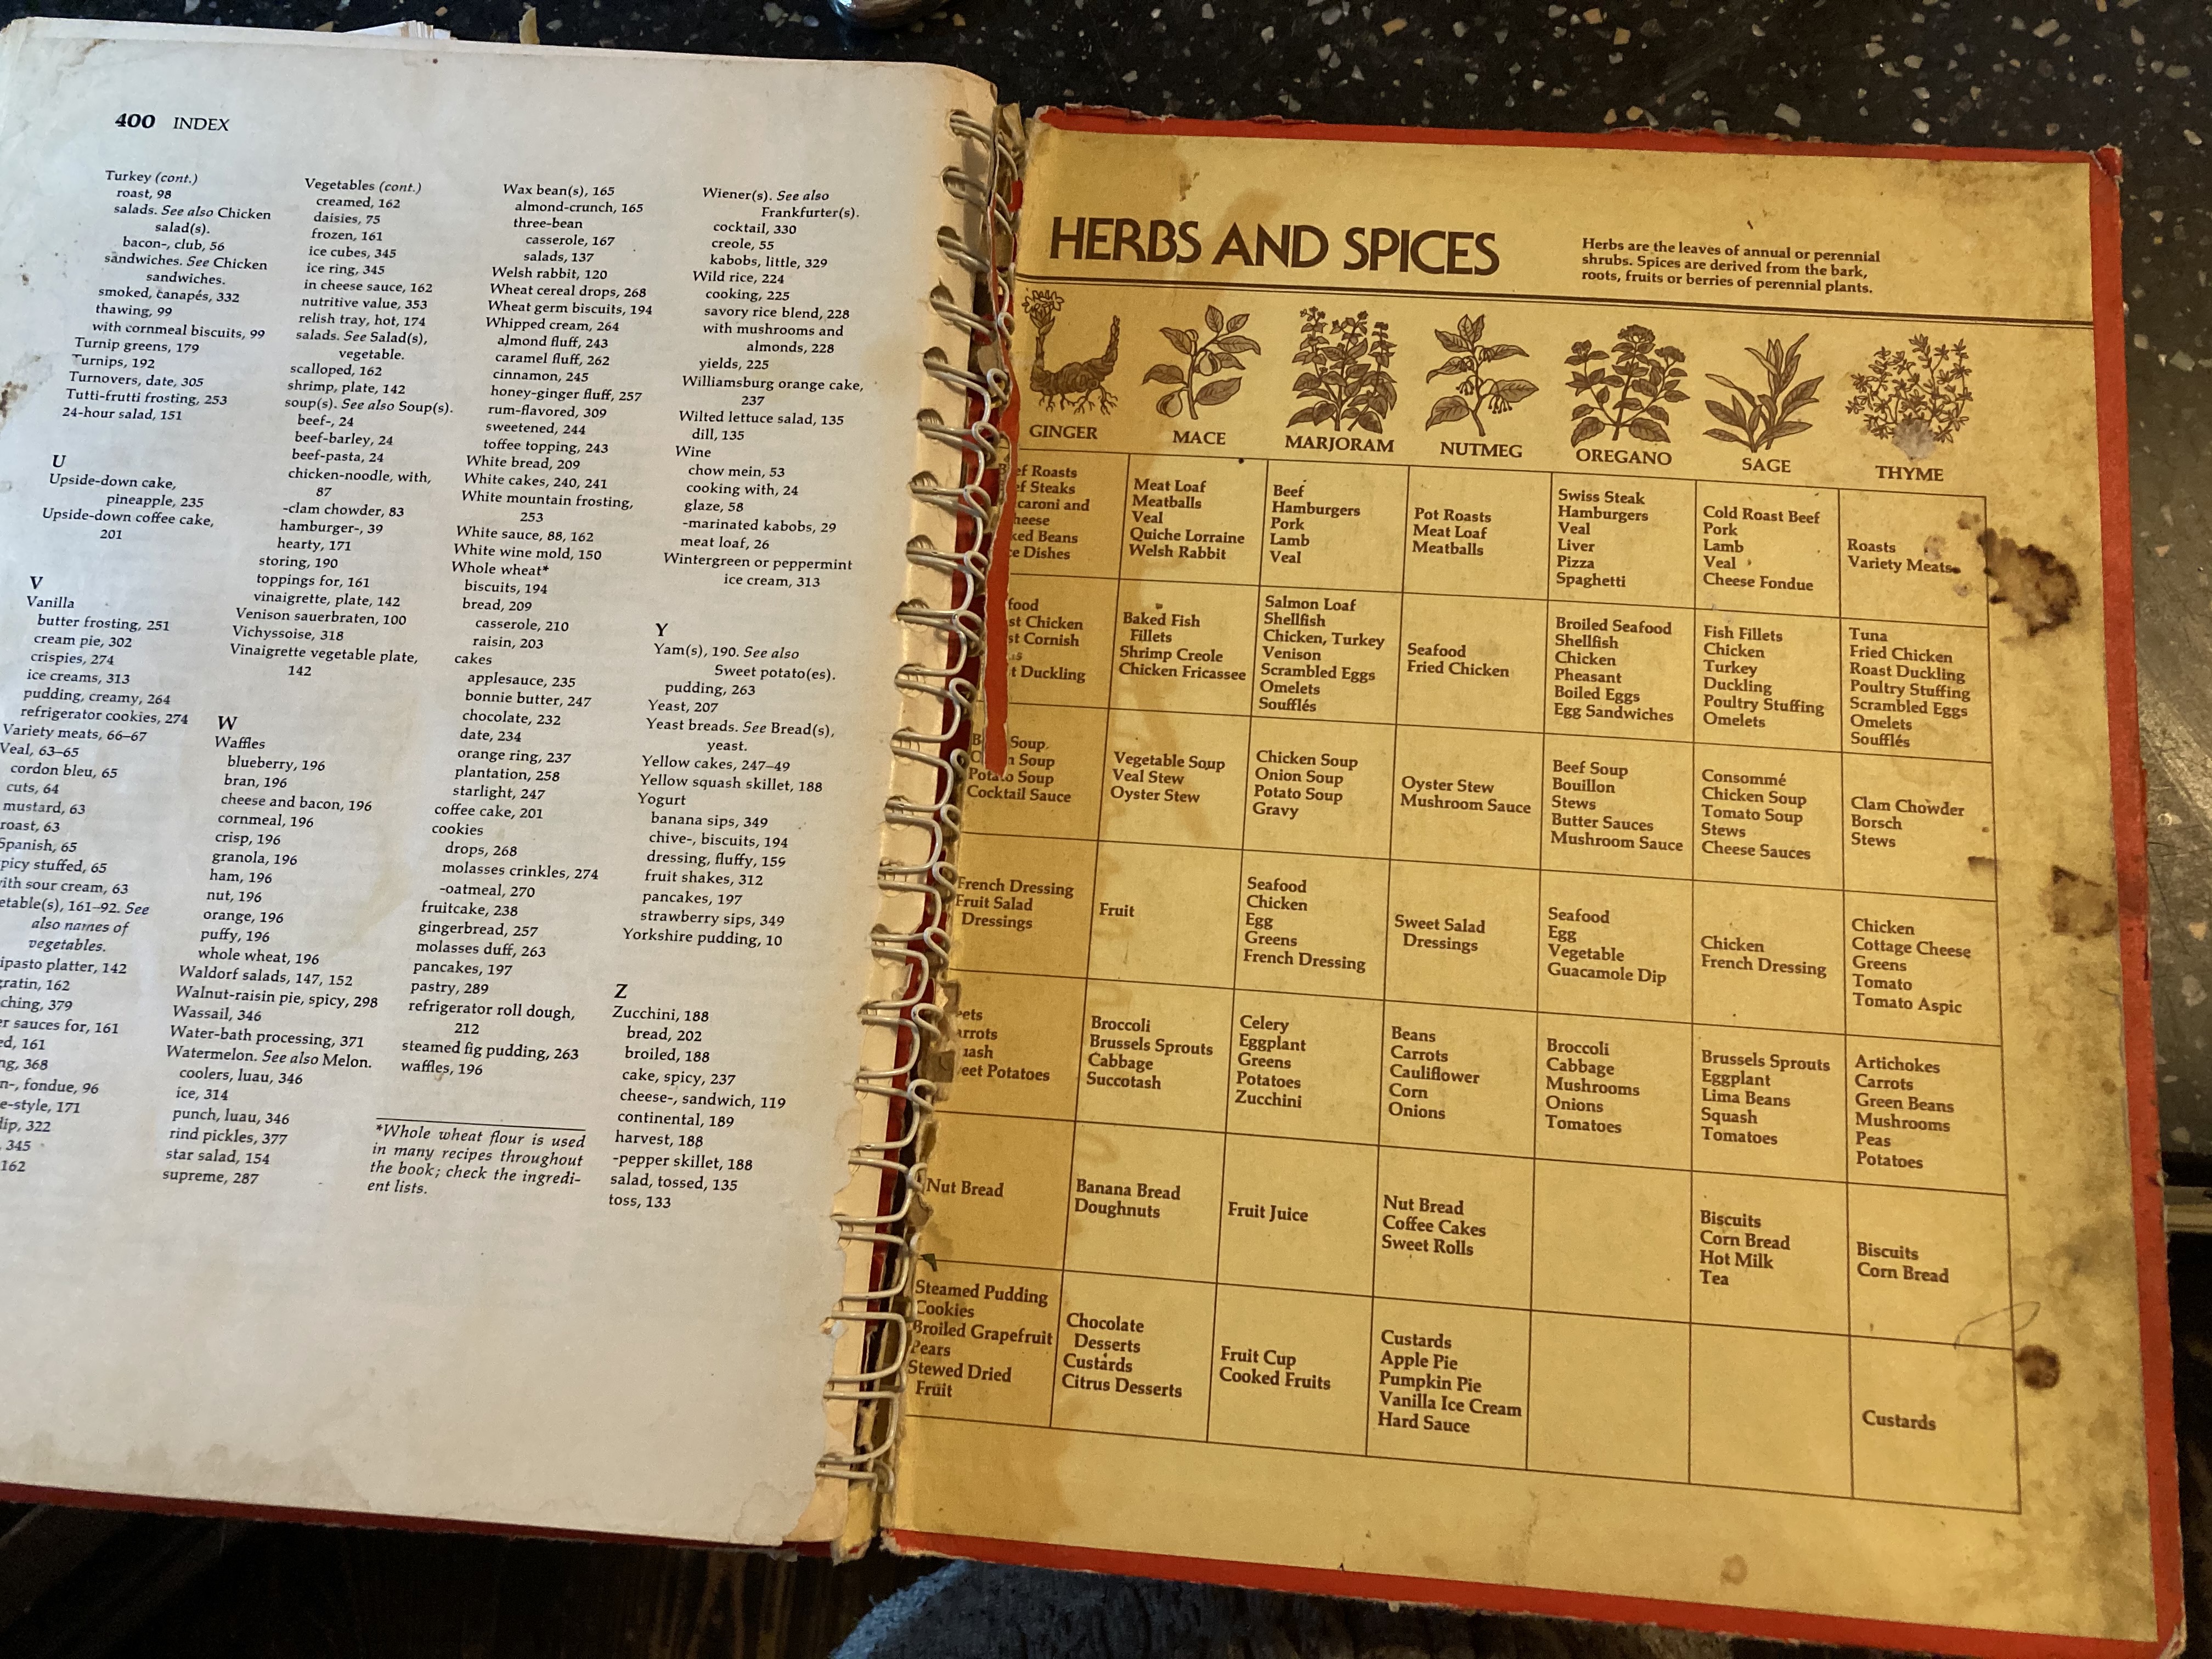 400 INDEX
Turkey (cont.)
roast, 98
salads. See also Chicken
salad(s).
bacon-, club, 56
sandwiches. See Chicken
sandwiches.
smoked, canapés, 332
thawing, 99
with cornmeal biscuits, 99
Turnip greens, 179
Turnips, 192
Turnovers, date, 305
Tutti-frutti frosting, 253
24-hour salad, 151
U
Upside-down cake,
pineapple, 235
Upside-down coffee cake,
201
V
Vanilla
butter frosting, 251
cream pie, 302
crispies, 274
ice creams, 313
pudding, creamy, 264
refrigerator cookies, 274
Variety meats, 66–67
Veal, 63–65
cordon bleu, 65
cuts, 64
mustard, 63
roast, 63
Spanish, 65
picy stuffed, 65
ith sour cream, 63
etable(s), 161–92. See
also names of
vegetables.
ipasto platter, 142
gratin, 162
ching, 379
er sauces for, 161
ed, 161
ng, 368
n-, fondue, 96
e-style, 171
dip, 322
, 345
162
Vegetables (cont.)
creamed, 162
daisies, 75
frozen, 161
ice cubes, 345
ice ring, 345
in cheese sauce, 162
nutritive value, 353
relish tray, hot, 174
salads. See Salad(s),
vegetable.
scalloped, 162
shrimp, plate, 142
soup(s). See also Soup(s).
beef-, 24
beef-barley, 24
beef-pasta, 24
chicken-noodle, with,
87
-clam chowder, 83
hamburger-, 39
hearty, 171
storing, 190
toppings for, 161
vinaigrette, plate, 142
Venison sauerbraten, 100
Vichyssoise, 318
Vinaigrette vegetable plate,
142
W
Waffles
blueberry, 196
bran, 196
cheese and bacon, 196
cornmeal, 196
crisp, 196
granola, 196
ham, 196
nut, 196
orange, 196
puffy, 196
whole wheat, 196
Waldorf salads, 147, 152
Walnut-raisin pie, spicy, 298
Wassail, 346
Water-bath processing, 371
Watermelon. See also Melon.
coolers, luau, 346
ice, 314
punch, luau, 346
rind pickles, 377
star salad, 154
supreme, 287
Wax bean(s), 165
almond-crunch, 165
three-bean
casserole, 167
salads, 137
Welsh rabbit, 120
Wheat cereal drops, 268
Wheat germ biscuits, 194
Whipped cream, 264
almond fluff, 243
caramel fluff, 262
cinnamon, 245
honey-ginger fluff, 257
rum-flavored, 309
sweetened, 244
toffee topping, 243
White bread, 209
White cakes, 240, 241
White mountain frosting,
253
White sauce, 88, 162
White wine mold, 150
Whole wheat*
biscuits, 194
bread, 209
casserole, 210
raisin, 203
cakes
applesauce, 235
bonnie butter, 247
chocolate, 232
date, 234
orange ring, 237
plantation, 258
starlight, 247
coffee cake, 201
cookies
drops, 268
molasses crinkles, 274
-oatmeal, 270
fruitcake, 238
gingerbread, 257
molasses duff, 263
pancakes, 197
pastry, 289
refrigerator roll dough,
212
steamed fig pudding, 263
waffles, 196
*Whole wheat flour is used
in many recipes throughout
the book; check the ingredi-
ent lists.
Wiener(s). See also
Frankfurter(s).
cocktail, 330
creole, 55
kabobs, little, 329
Wild rice, 224
cooking, 225
savory rice blend, 228
with mushrooms and
almonds, 228
yields, 225
Williamsburg orange cake,
237
Wilted lettuce salad, 135
dill, 135
Wine
chow mein, 53
cooking with, 24
glaze, 58
-marinated kabobs, 29
meat loaf, 26
Wintergreen or peppermint
ice cream, 313
Y
Yam(s), 190. See also
Sweet potato(es).
pudding, 263
Yeast, 207
Yeast breads. See Bread(s),
yeast.
Yellow cakes, 247–49
Yellow squash skillet, 188
Yogurt
banana sips, 349
chive-, biscuits, 194
dressing, fluffy, 159
fruit shakes, 312
pancakes, 197
strawberry sips, 349
Yorkshire pudding, 10
Z
Zucchini, 188
bread, 202
broiled, 188
cake, spicy, 237
cheese-, sandwich, 119
continental, 189
harvest, 188
-pepper skillet, 188
salad, tossed, 135
toss, 133
HERBS AND SPICES
Herbs are the leaves of annual or perennial
shrubs. Spices are derived from the bark,
roots, fruits or berries of perennial plants.
GINGER
MACE
MARJORAM
NUTMEG
OREGANO
SAGE
THYME
ef Roasts
ef Steaks
caroni and
heese
ked Beans
e Dishes
Meat Loaf
Meatballs
Veal
Quiche Lorraine
Welsh Rabbit
Beef
Hamburgers
Pork
Lamb
Veal
Pot Roasts
Meat Loaf
Meatballs
Swiss Steak
Hamburgers
Veal
Liver
Pizza
Spaghetti
Cold Roast Beef
Pork
Lamb
Veal
Cheese Fondue
Roasts
Variety Meats
food
st Chicken
st Cornish
t Duckling
Baked Fish
Fillets
Shrimp Creole
Chicken Fricassee
Salmon Loaf
Shellfish
Chicken, Turkey
Venison
Scrambled Eggs
Omelets
Soufflés
Seafood
Fried Chicken
Broiled Seafood
Shellfish
Chicken
Pheasant
Boiled Eggs
Egg Sandwiches
Fish Fillets
Chicken
Turkey
Duckling
Poultry Stuffing
Omelets
Tuna
Fried Chicken
Roast Duckling
Poultry Stuffing
Scrambled Eggs
Omelets
Soufflés
Soup
Soup
Potato Soup
Cocktail Sauce
Vegetable Soup
Veal Stew
Oyster Stew
Chicken Soup
Onion Soup
Potato Soup
Gravy
Oyster Stew
Mushroom Sauce
Beef Soup
Bouillon
Stews
Butter Sauces
Mushroom Sauce
Consommé
Chicken Soup
Tomato Soup
Stews
Cheese Sauces
Clam Chowder
Borsch
Stews
French Dressing
Fruit Salad
Dressings
Fruit
Seafood
Chicken
Egg
Greens
French Dressing
Sweet Salad
Dressings
Seafood
Egg
Vegetable
Guacamole Dip
Chicken
French Dressing
Chicken
Cottage Cheese
Greens
Tomato
Tomato Aspic
eets
arrots
uash
eet Potatoes
Broccoli
Brussels Sprouts
Cabbage
Succotash
Celery
Eggplant
Greens
Potatoes
Zucchini
Beans
Carrots
Cauliflower
Corn
Onions
Broccoli
Cabbage
Mushrooms
Onions
Tomatoes
Brussels Sprouts
Eggplant
Lima Beans
Squash
Tomatoes
Artichokes
Carrots
Green Beans
Mushrooms
Peas
Potatoes
Nut Bread
Banana Bread
Doughnuts
Fruit Juice
Nut Bread
Coffee Cakes
Sweet Rolls
Biscuits
Corn Bread
Hot Milk
Tea
Biscuits
Corn Bread
Steamed Pudding
Cookies
Broiled Grapefruit
Pears
Stewed Dried
Fruit
Chocolate
Desserts
Custards
Citrus Desserts
Fruit Cup
Cooked Fruits
Custards
Apple Pie
Pumpkin Pie
Vanilla Ice Cream
Hard Sauce
Custards